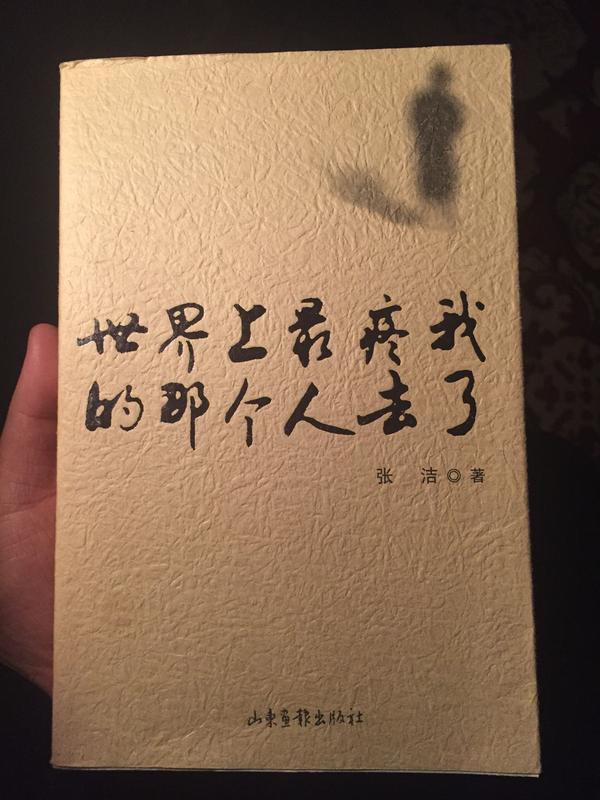 世界上最疼我
的那个人去了
张 洁◎著
山东画报出版社